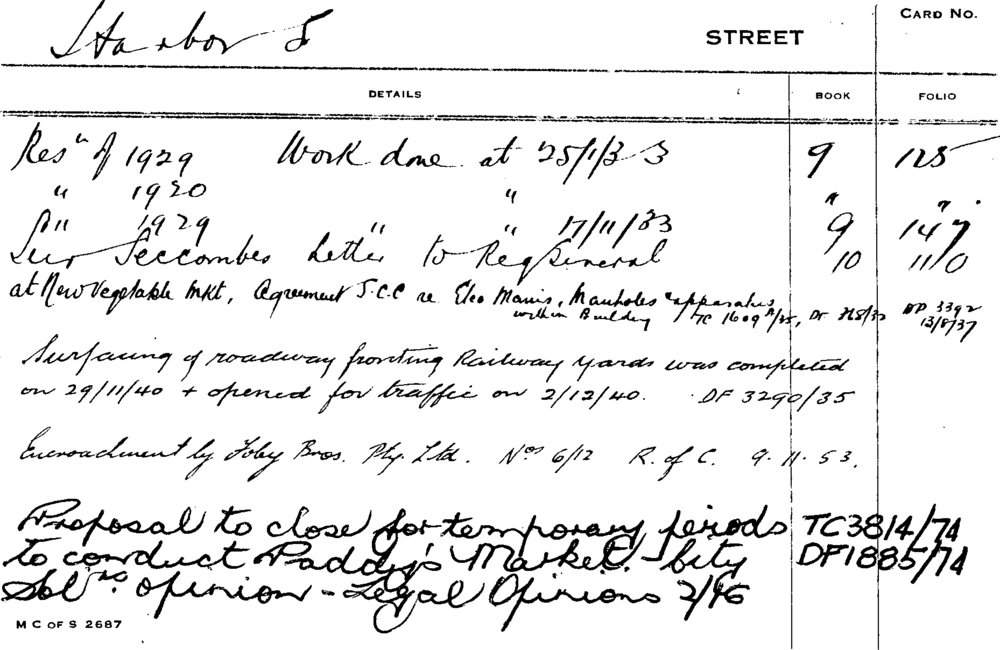 Harbor S STREET CARD NO.
DETAILS BOOK FOLIO
Resn of 1929 Work done at 25/1/33 9 125
" 1920 " " "
" 1929 " " 17/11/33 9 147
Seccombes Letter to Reg General 10 110
at New Vegetable Mkt, Agreement S.C.C re Elec Mains, Manholes & apparatus
within Building TC 1609/35, DF 3392
13/8/37
Surfacing of roadway fronting Railway Yards was completed
on 29/11/40 + opened for traffic on 2/12/40. DF 3290/35
Encroachment by Foby Bros. Pty. Ltd. Nos 6/12 R. of C. 9.11.53.
Proposal to close for temporary periods TC3814/74
to conduct Paddy's Market. - City DF1885/74
Solrs. opinion - Legal Opinions 2/46
M C OF S 2687